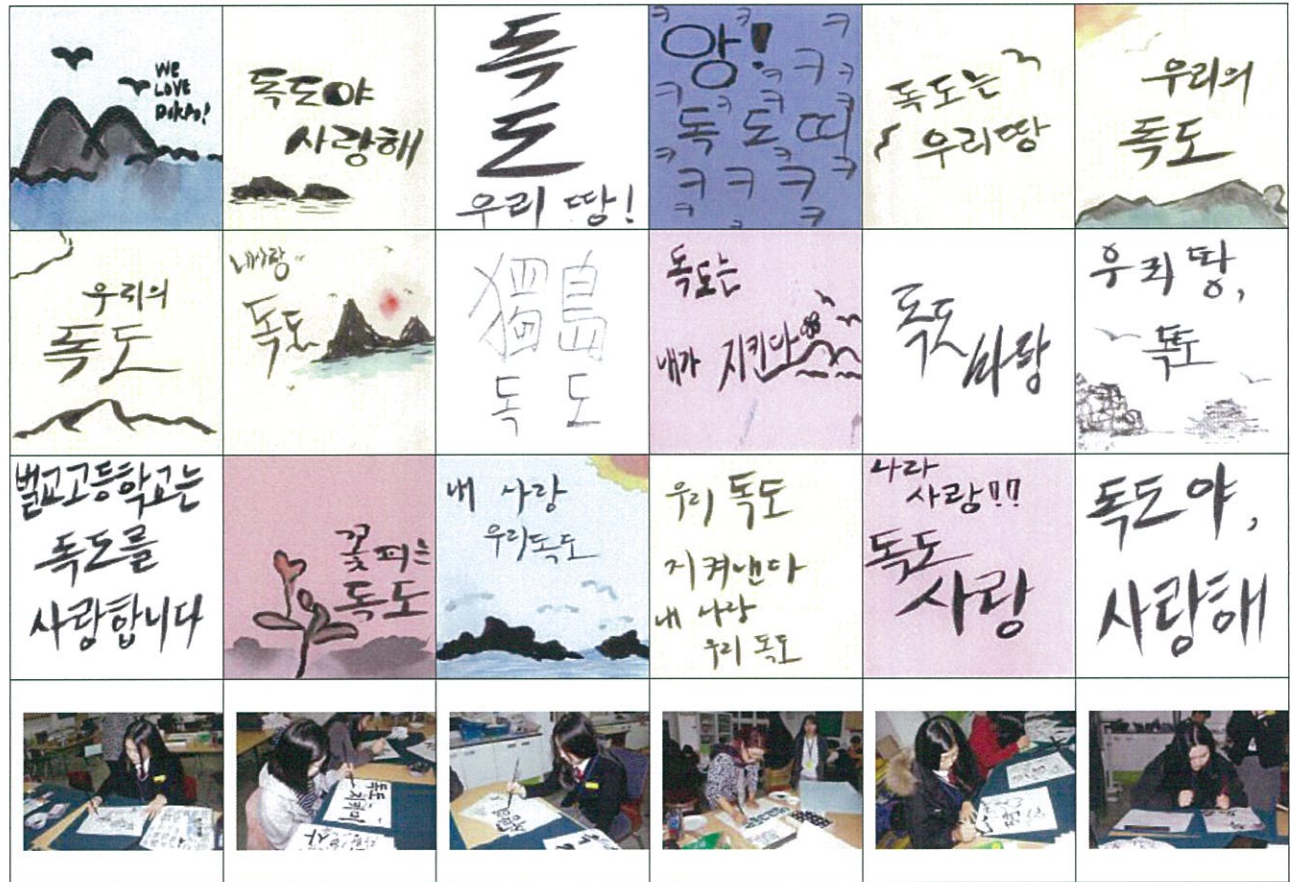 WE
LOVE
DOKDO!
독도야
사랑해
독
도
우리 땅!
앙!
독도띠
ㅋ ㅋ ㅋ ㅋ
독도는
우리땅
우리의
독도
우리의
독도
내사랑
독도
獨島
독도
독도는
내가 지킨다
독도
사랑
우리 땅,
독도
벌교고등학교는
독도를
사랑합니다
꽃피는
독도
내 사랑
우리독도
우리 독도
지켜낸다
내 사랑
우리 독도
나라
사랑!!
독도
사랑
독도야,
사랑해
독도
지키미